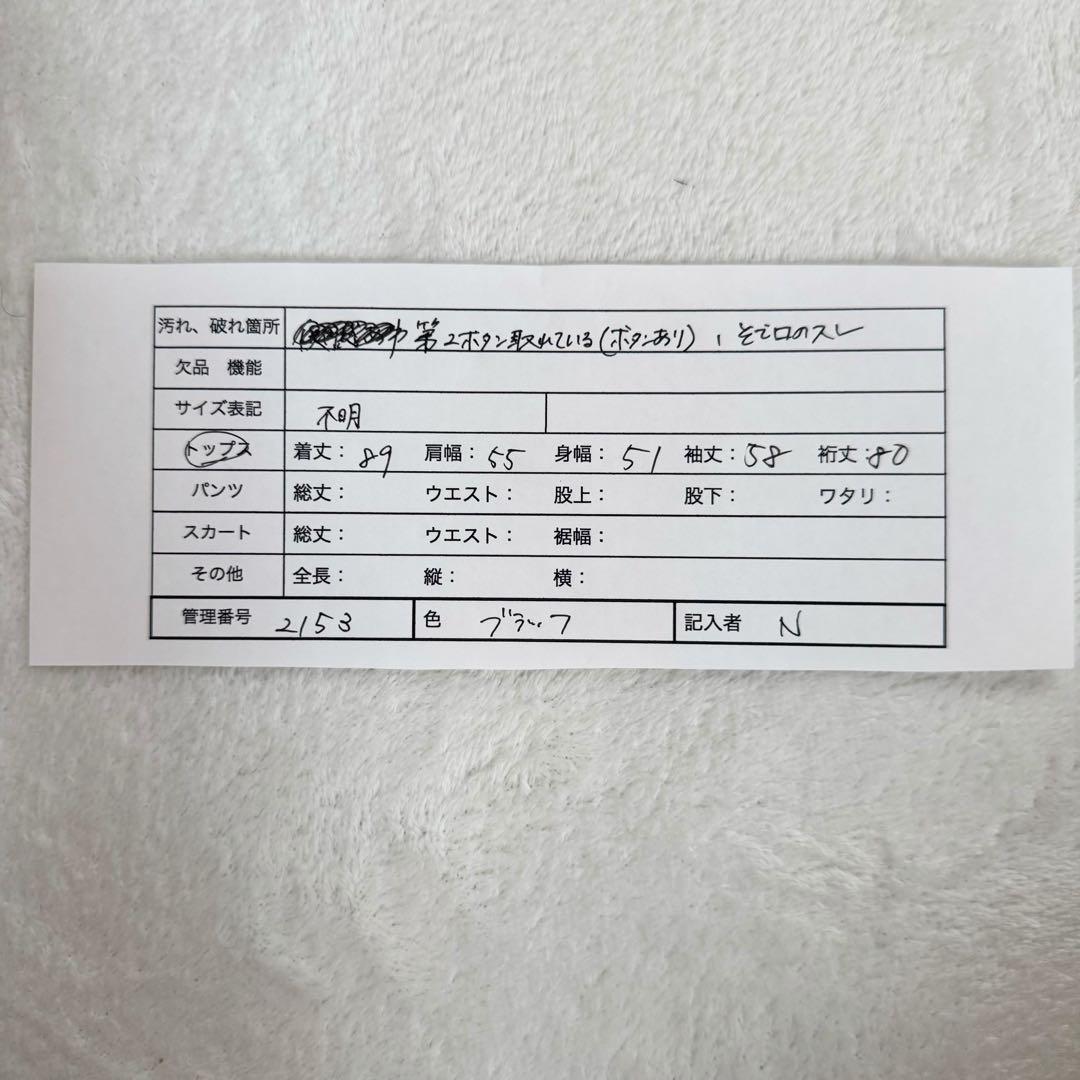 汚れ、破れ箇所 第2ボタン取れている(ボタンあり)、そで口のスレ
欠品 機能
サイズ表記 不明
トップス 着丈：89 肩幅：55 身幅：51 袖丈：58 裄丈：80
パンツ 総丈： ウエスト： 股上： 股下： ワタリ：
スカート 総丈： ウエスト： 裾幅：
その他 全長： 縦： 横：
管理番号 2153 色 ブラック 記入者 N